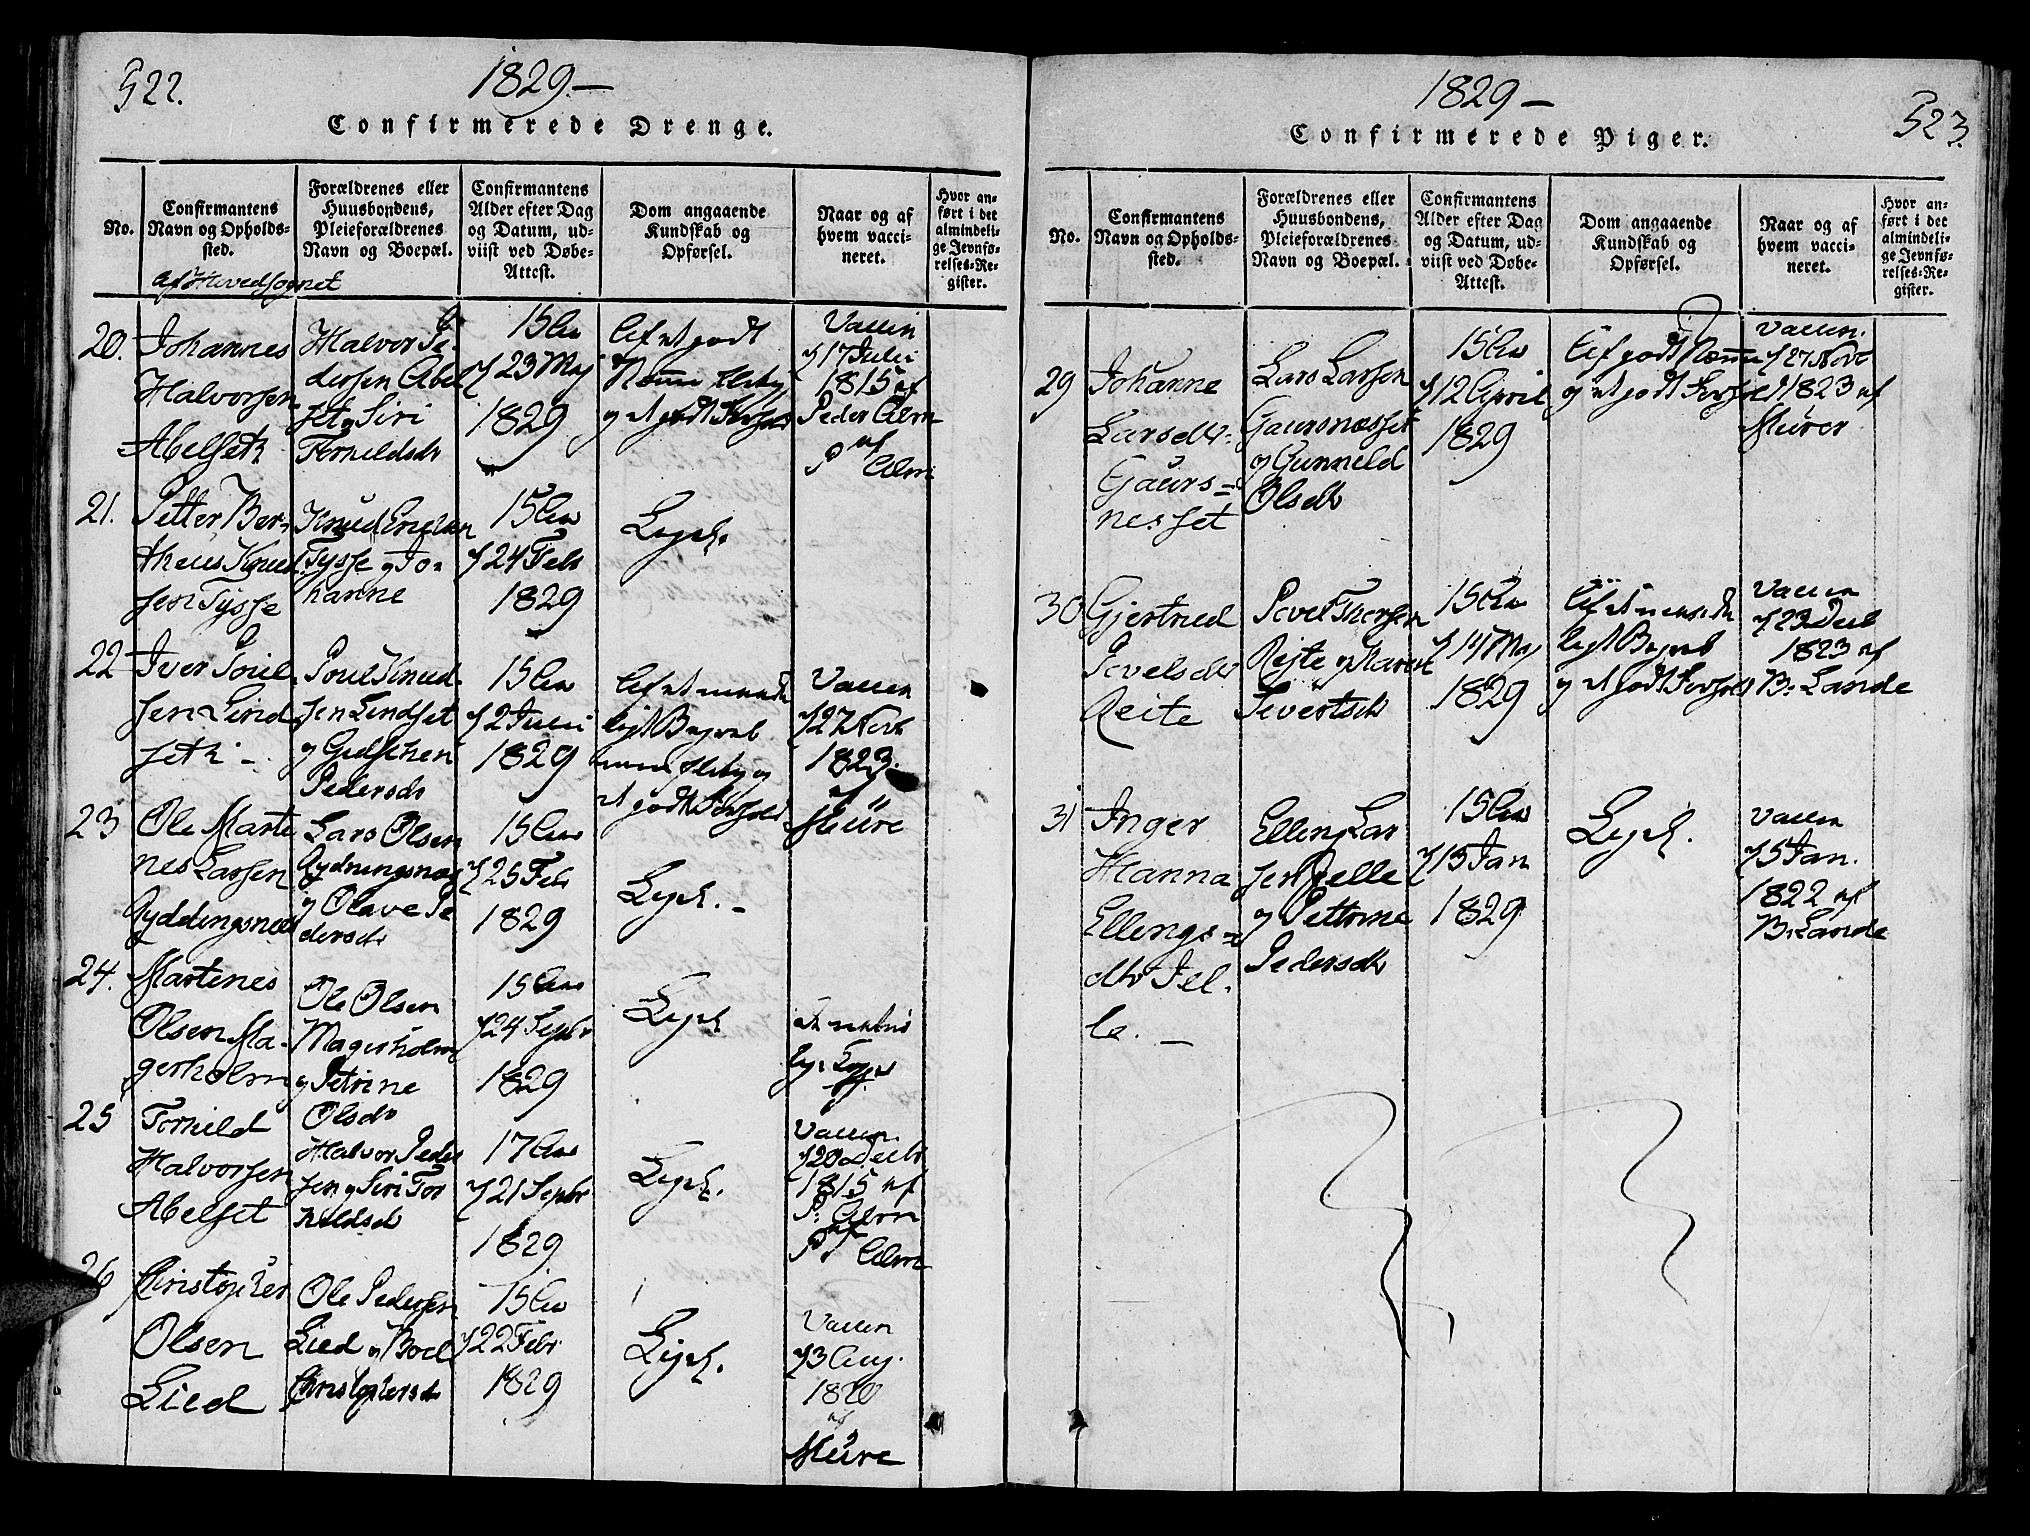 522.
1829.—
Confirmerede Drenge.
No.
Confirmantens
Navn og Opholds-
sted.
Forældrenes eller
Huusbondens,
Pleieforældrenes
Navn og Boepæl.
Confirmantens
Alder efter Dag
og Datum, ud-
viist ved Døbe-
Attest.
Dom angaaende
Kundskab og
Opførsel.
Naar og af
hvem vacci-
neret.
Hvor an-
ført i det
almindeli-
ge Jevnfø-
relses-Re-
gister.
af Hovedsognet
20.
Johannes
Halvorsen
Abelseth
Halvor Pe-
dersen Abel
set og Siri
Tornildsdr
15
23 May
1829
af et godt
og et godt
Vaccin
17 Julii
1815 af
Peder Alm
af
P Alm
21.
Petter Ber-
theus Knud
sen Tysse
Knud
Tysse og Jo-
hanne
15
24 Febr
1829
Ligel.
22
Iver Poul
sen Lind
seth —
Poul Knud-
sen Lindset
og
Pedersdr
15
2 Julii
1829
af et
ligt Begreb
og
et godt Forhold
Vaccin
27 Novb
1823.
af
Mure
23
Ole Marti
nes Larsen
Gyddingsnes
Lars Olsen
Gydningsnæs
og Olave Pe
dersdr
15
25 Febr
1829
Ligel. —
24.
Martenes
Olsen Ma-
gerholm
Ole Olsen
Magerholm
og Petrine
Olsdr
15
24 Septbr
1829
Ligel
25
Tornild
Halvorsen
Abelset
Halvor Peder
sen og Siri Tor
nildsd
17
21 Septbr
1829
Ligel.
Vaccin.
20 Decbr
1815 af
P: Alm
af
P Alm
26
Christopher
Olsen
Lied
Ole Pedersen
Lied og Boel
Christophersdr
15
22 Febr
1829
Ligel.
Vaccin
3 Aug.
1820
af
Mure
1829 —
523.
Confirmerede Piger.
No.
Confirmantens
Navn og Opholds-
sted.
Forældrenes eller
Huusbondens,
Pleieforældrenes
Navn og Boepæl.
Confirmantens
Alder efter Dag
og Datum, ud-
viist ved Døbe-
Attest.
Dom angaaende
Kundskab og
Opførsel.
Naar og af
hvem vacci-
neret.
Hvor an-
ført i det
almindeli-
ge Jevnfø-
relses-Re-
gister.
29
Johanne
Larsdtr
Gaurs=
nesset
Lars Larsen
Gaursnesset
og Gunneld
Olsdtr
15
12 April
1829
af godt
og et godt
Vaccin.
27 Novb
1823 af
Murer
30
Gjertrud
Povelsdtr
Reite
Povel Thorsen
Rejte og Maret
Sivertsdr
15
14 May
1829
af et
ligt Begreb
og et godt Forhold
Vaccin
23 Decb
1823 af
B: Lande
31
Inger
Hanna
Ellings=
dtr Jel-
le. —
Elling Lar
sen Jelle
og Pettrine
Pedersdtr
15
15 Jan
1829
Ligel.
Vaccin
5 Jan.
1822 af
B: Lande